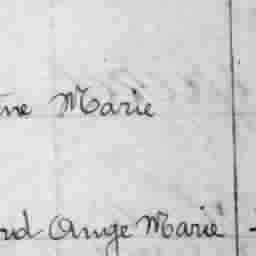 ne Marie
rd Ange Marie -